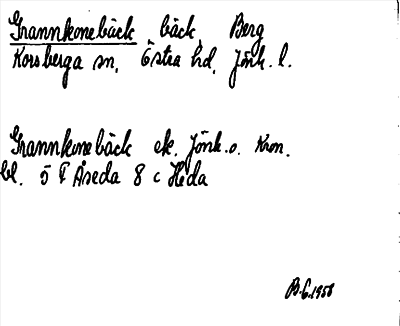 Grannkonebäck bäck, Berg
Korsberga sn, Östra hd, Jönk. l.
Grannkonebäck ek. Jönk. o. Kron.
bl. 5 F Åseda 8 c Heda
B.G. 1958